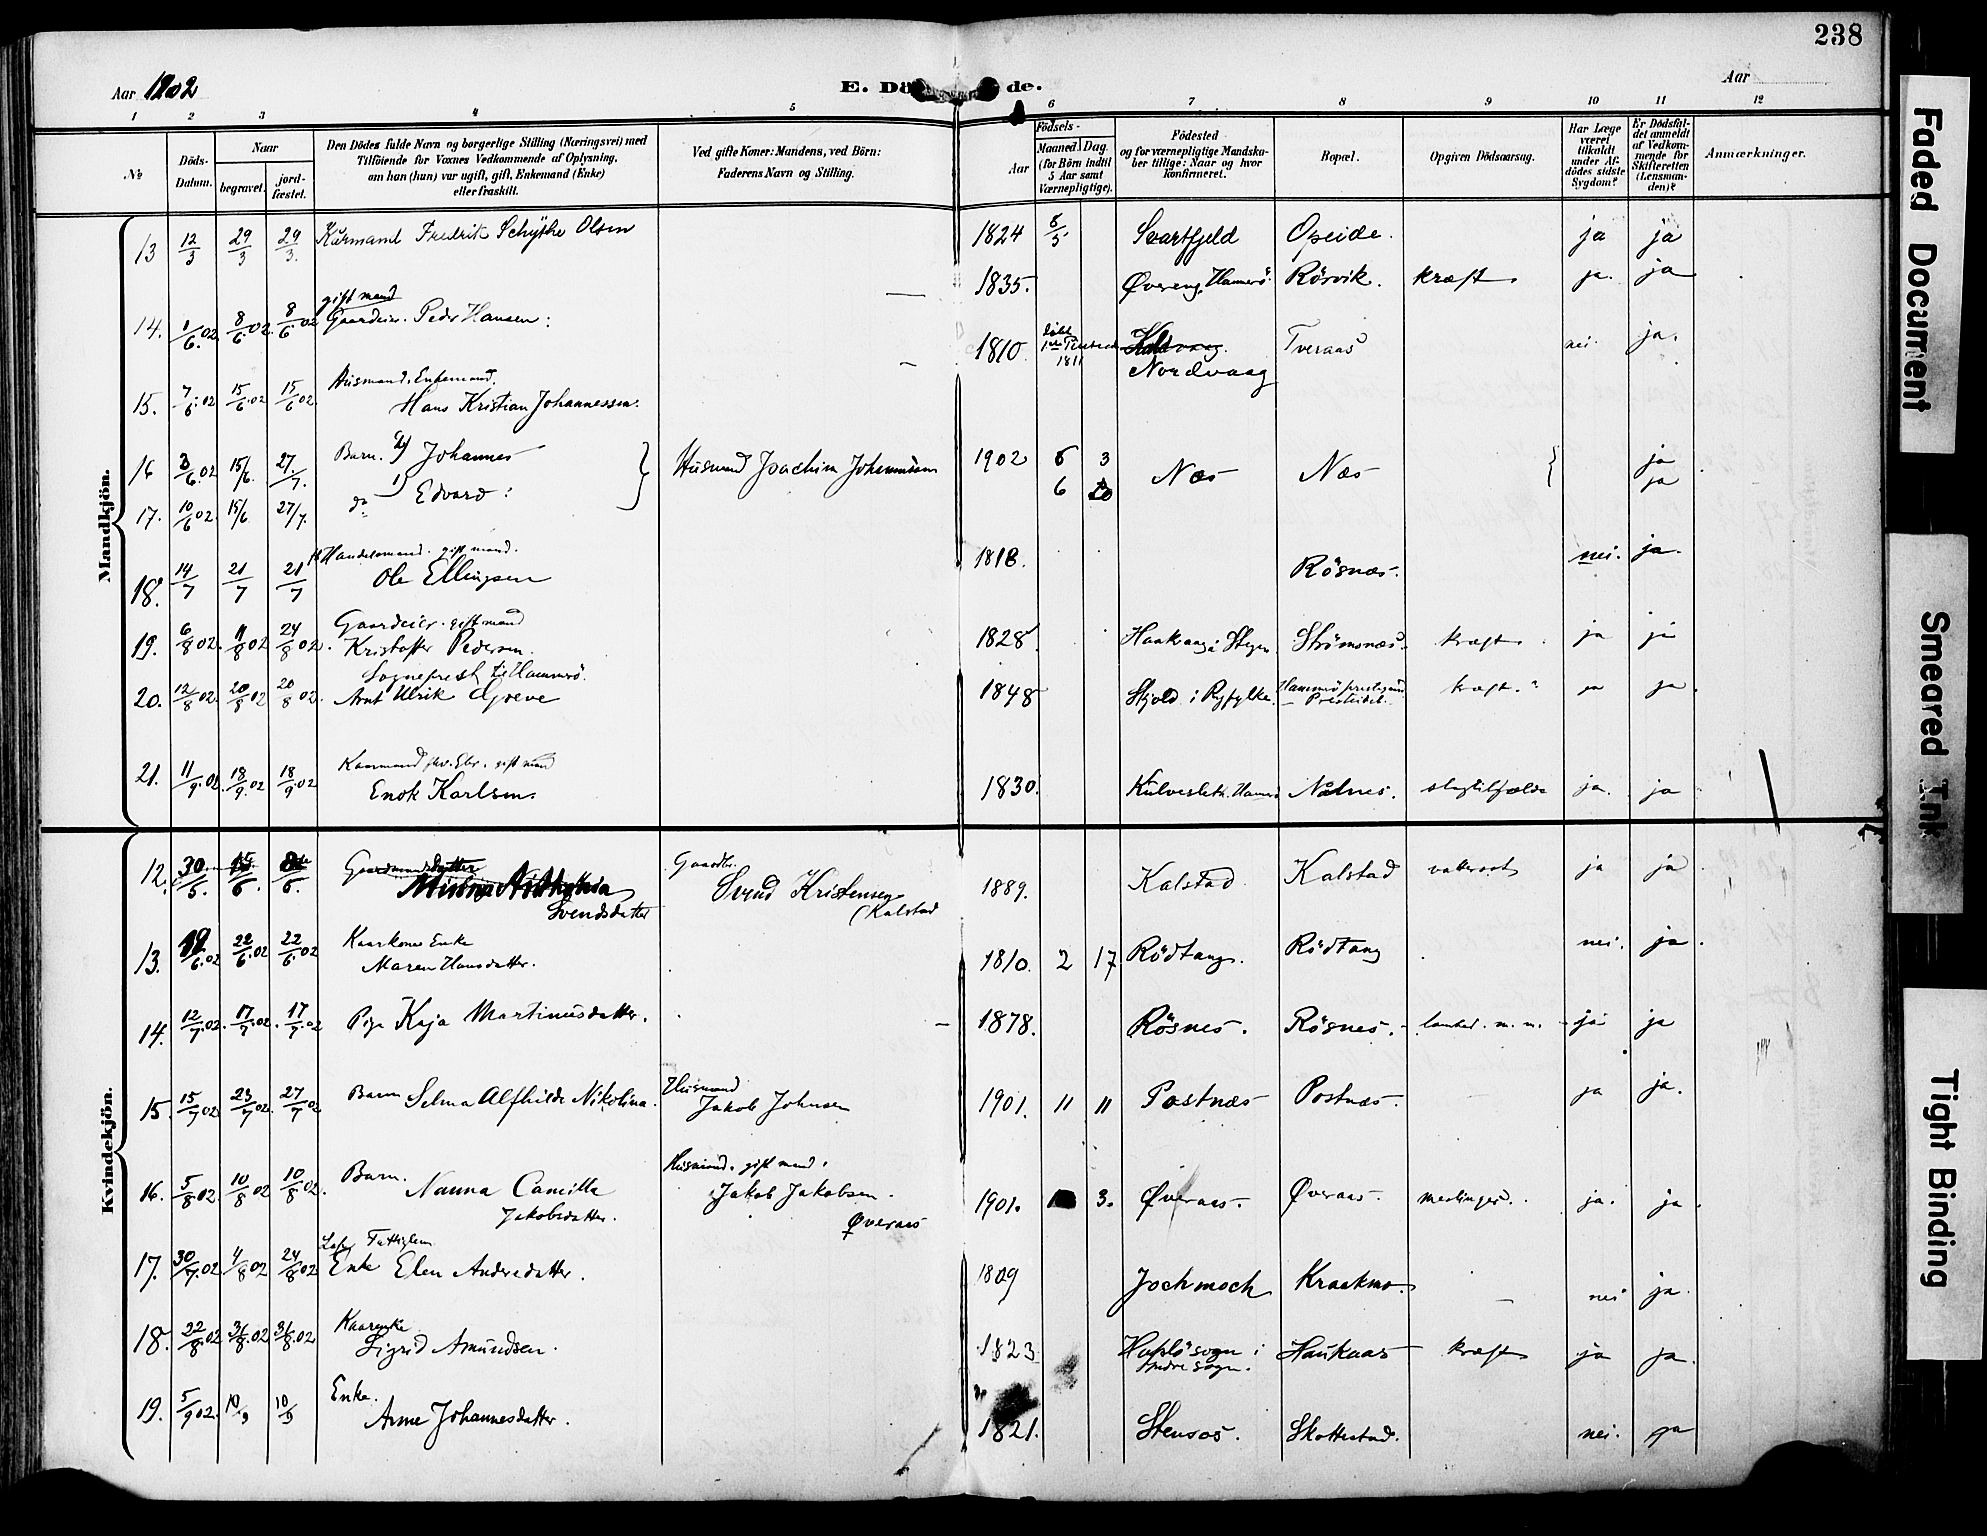 238
Aar 1902
E. Dö de.
Aar
1 2 3 4 5 6 7 8 9 10 11 12
№
Döds-
Datum.
Naar
begravet.
jord-
fæstet.
Den Dödes fulde Navn og borgerlige Stilling (Næringsvei) med
Tilföiende for Voxnes Vedkommende af Oplysning,
om han (hun) var ugift, gift, Enkemand (Enke)
eller fraskilt.
Ved gifte Koner: Mandens, ved Börn:
Faderens Navn og Stilling.
Födsels-
Aar
Maaned Dag
(for Börn indtil
5 Aar samt
Værnepligtige).
Födested
og for værnepligtige Mandska-
ber tillige: Naar og hvor
Konfirmeret.
Bopæl.
Opgiven Dödsaarsag.
Har Læge
været
tilkaldt
under Af-
dödes sidste
Sygdom?
Er Dödsfal-
det anmeldt
af Vedkom-
mende for
Skifteretten
(Lensman-
den)?
Anmærkninger.
Mandkjön.
13 12/3 29/3 29/3. Kårmand Fredrik Schythe Olsen 1824 Svartfjeld Opeide. ja ja
14. 1/6.02. 8/6.02. 8/6.02 gift mand
Gaardeier. Peder Hansen: — 1835. Øvereng, Hamerö Rörvik. kræft ja. ja
15. 7/6.02 15/6.02 15/6.02. Husmand. Enkemand.
Hans Kristian Johannessen. 1810. 1811 Nordvaag Tveraas nei. ja.
16 3/6.02 15/6. 27/7. Barn. 2) Johannes Husmand Joachim Johannesen 1902 6 3 Næs Næs ja
17. 10/6 02. 15/6 27/7. do 1) Edvard: 6 ja
18. 14/7 21/7 21/7 Handelsmand. gift mand.
Ole Ellingsen 1818. Rösnæs. nei. ja.
19. 6/8 02. 11/8 02 24/8 02. Gaardeier. gift mand
Kristoffer Pedersen. 1828 Haakaag i Stegen Strömsnæs. kræft ja ja
20. 12/8 02. 20/8 02 20/8 02. Sogneprest til Hammerö.
Arnt Ulrik Greve 1848 Skjold i Ryfylke. kræft. ja ja.
21. 11/9.02. 18/9.02 18/9.02 Kaarmand gift mand
Enok Karlsen. 1830. Nålnes. slagtilfælde ja. ja
Kvindekjön.
12. 30/5. 15/6. 8/6. Gaardmandsdatter
Svendsdatter Gaardbr.
Svend Kristensen
(Kalstad 1889. Kalstad Kalstad ja ja
13. 19/6.02 22/6.02 22/6 02 Kaarkone Enke
Maren Hansdatter. 1810. 2 17 Rödtang. Rödtang nei. ja.
14. 12/7.02. 17/7.02. 17/7.02 Pige Kaja Martinusdatter. — 1878. Rösnes. Rösnes. ja ja
15. 15/7 02. 23/7 02. 27/7 02 Barn Selma Alfhilde Nikolina. Husmand
Jakob Johnsen 1901. 11 11 Postnæs Postnæs. ja ja.
16. 5/8 02. 10/8 02 10/8 02. Barn.
Nanna Camilla
Jakobsdatter. Husmand. gift mand.
Jakob Jakobsen.
Øveraas 1901. 3. Øveraas. Øveraas. meslinger. ja. ja.
17. 30/7.02 4/8 02 24/8 02 Enke Elen Andersdatter. 1809 Jochmoch Kraakmo. — nei ja.
18. 22/8.02 31/8.02 31/8.02 Kaarenke
Sigrid Amundsen. 1823 sogn i Haukaas kræft ja ja.
19. 5/9 02. 10/9 10/9 Enke.
Anne Johannesdatter. 1821. Stensos. Skottestad. nei. ja
Faded Document
Smeared Ink
Tight Binding